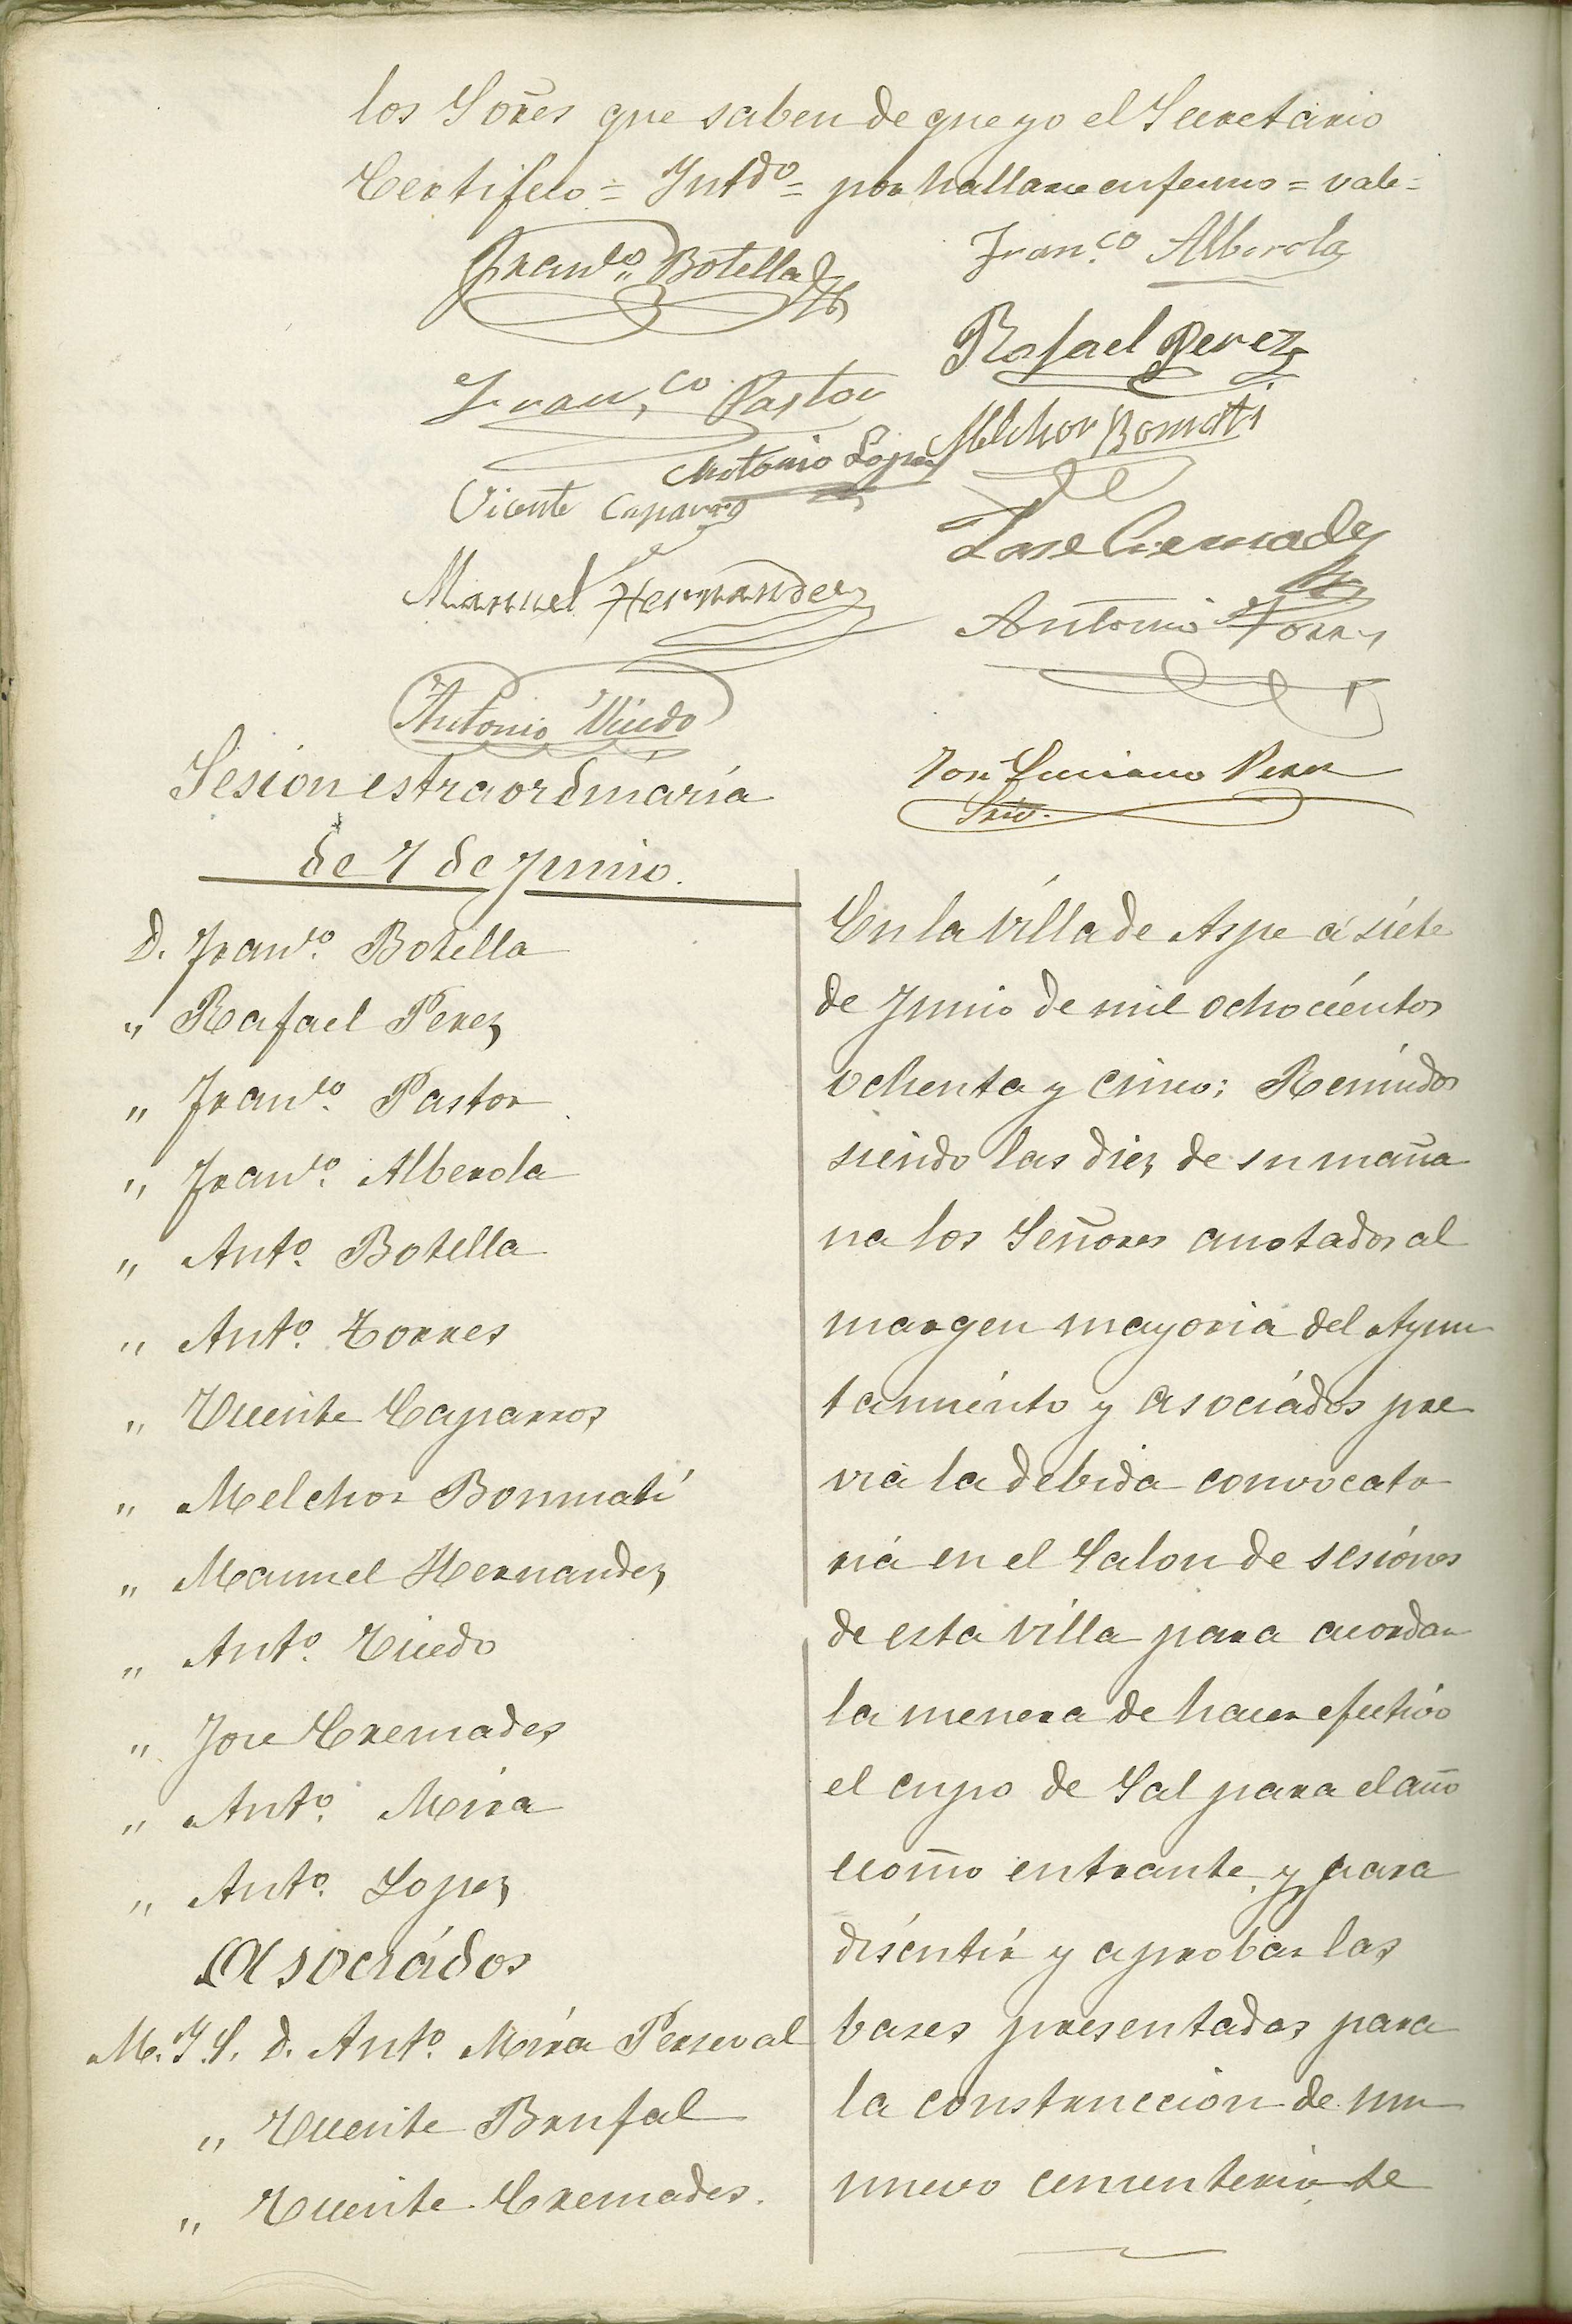 los Sores que saben de que yo el Secretario
Certifico = Intdo = por hallarse enfermo = vale =
Franco. Botella
Fran.co Alberola
Rafael Perez
Fran,co Pastor
Melchor Bomati
Antonio Lopez
Vicente Caparros
Jose Cremades
Manuel Hernandez
Antonio Torres
Antonio Vicedo
Jose Luciano Perez
Srio.
Sesion estraordinaria
de 7 de Junio.
D. Franco. Botella
" Rafael Perez
" Franco. Pastor
" Franco. Alberola
" Anto. Botella
" Anto. Torres
" Vicente Caparros
" Melchor Bonmatí
" Manuel Hernandez
" Anto. Vicedo
" Jose Cremades
" Anto. Mira
" Anto. Lopez
Asociádos
M. Y. S. D. Anto. Mira Perseval
" Vicente Brufal
" Vicente Cremades.
En la Villa de Aspe á siete
de Junio de mil ochocientos
ochenta y cinco: Reunidos
siendo las diez de su maña
na los Señores anotados al
margen mayoria del Ayun
tamiento y asociádos pre
via la debida convocato
ria en el Salon de sesiónes
de esta Villa para acordar
la menera de hacer efectivo
el cupo de Sal para el año
ecomo entrante, y para
discutir y aprobar las
bases presentadas para
la construccion de un
nuevo cementerio te